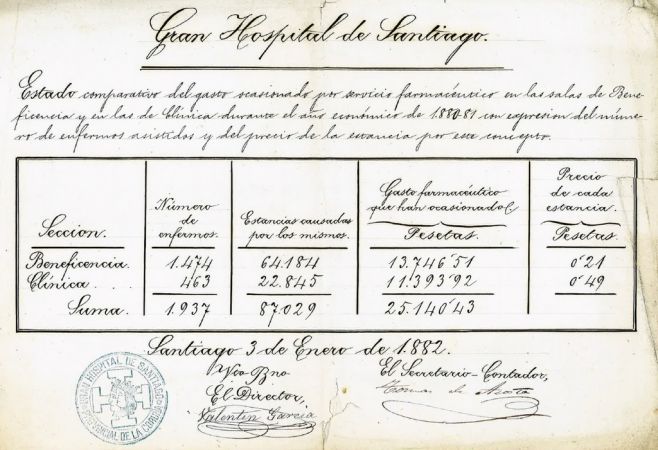 Gran Hospital de Santiago.
Estado comparativo del gasto ocasionado por servicio farmacéutico en las salas de Bene-
ficencia y en las de Clínica durante el año económico de 1.880-81 con expresion del núme-
ro de enfermos asistidos y del precio de la estancia por este concepto.
Seccion. Número de enfermos. Estancias causadas por los mismos. Gasto farmacéutico que han ocasionado Pesetas. Precio de cada estancia. Pesetas.
Beneficencia. 1.474 64.184 13.746'51 0'21
Clínica. . . 463 22.845 11.393'92 0'49
Suma. 1.937 87.029 25.140'43
Santiago 3 de Enero de 1.882.
Vto Bno
El Director,
Valentin Garcia
El Secretario-Contador,
Tomas de Acosta
HOSPITAL DE SANTIAGO
PROVINCIAL DE LA CORUÑA